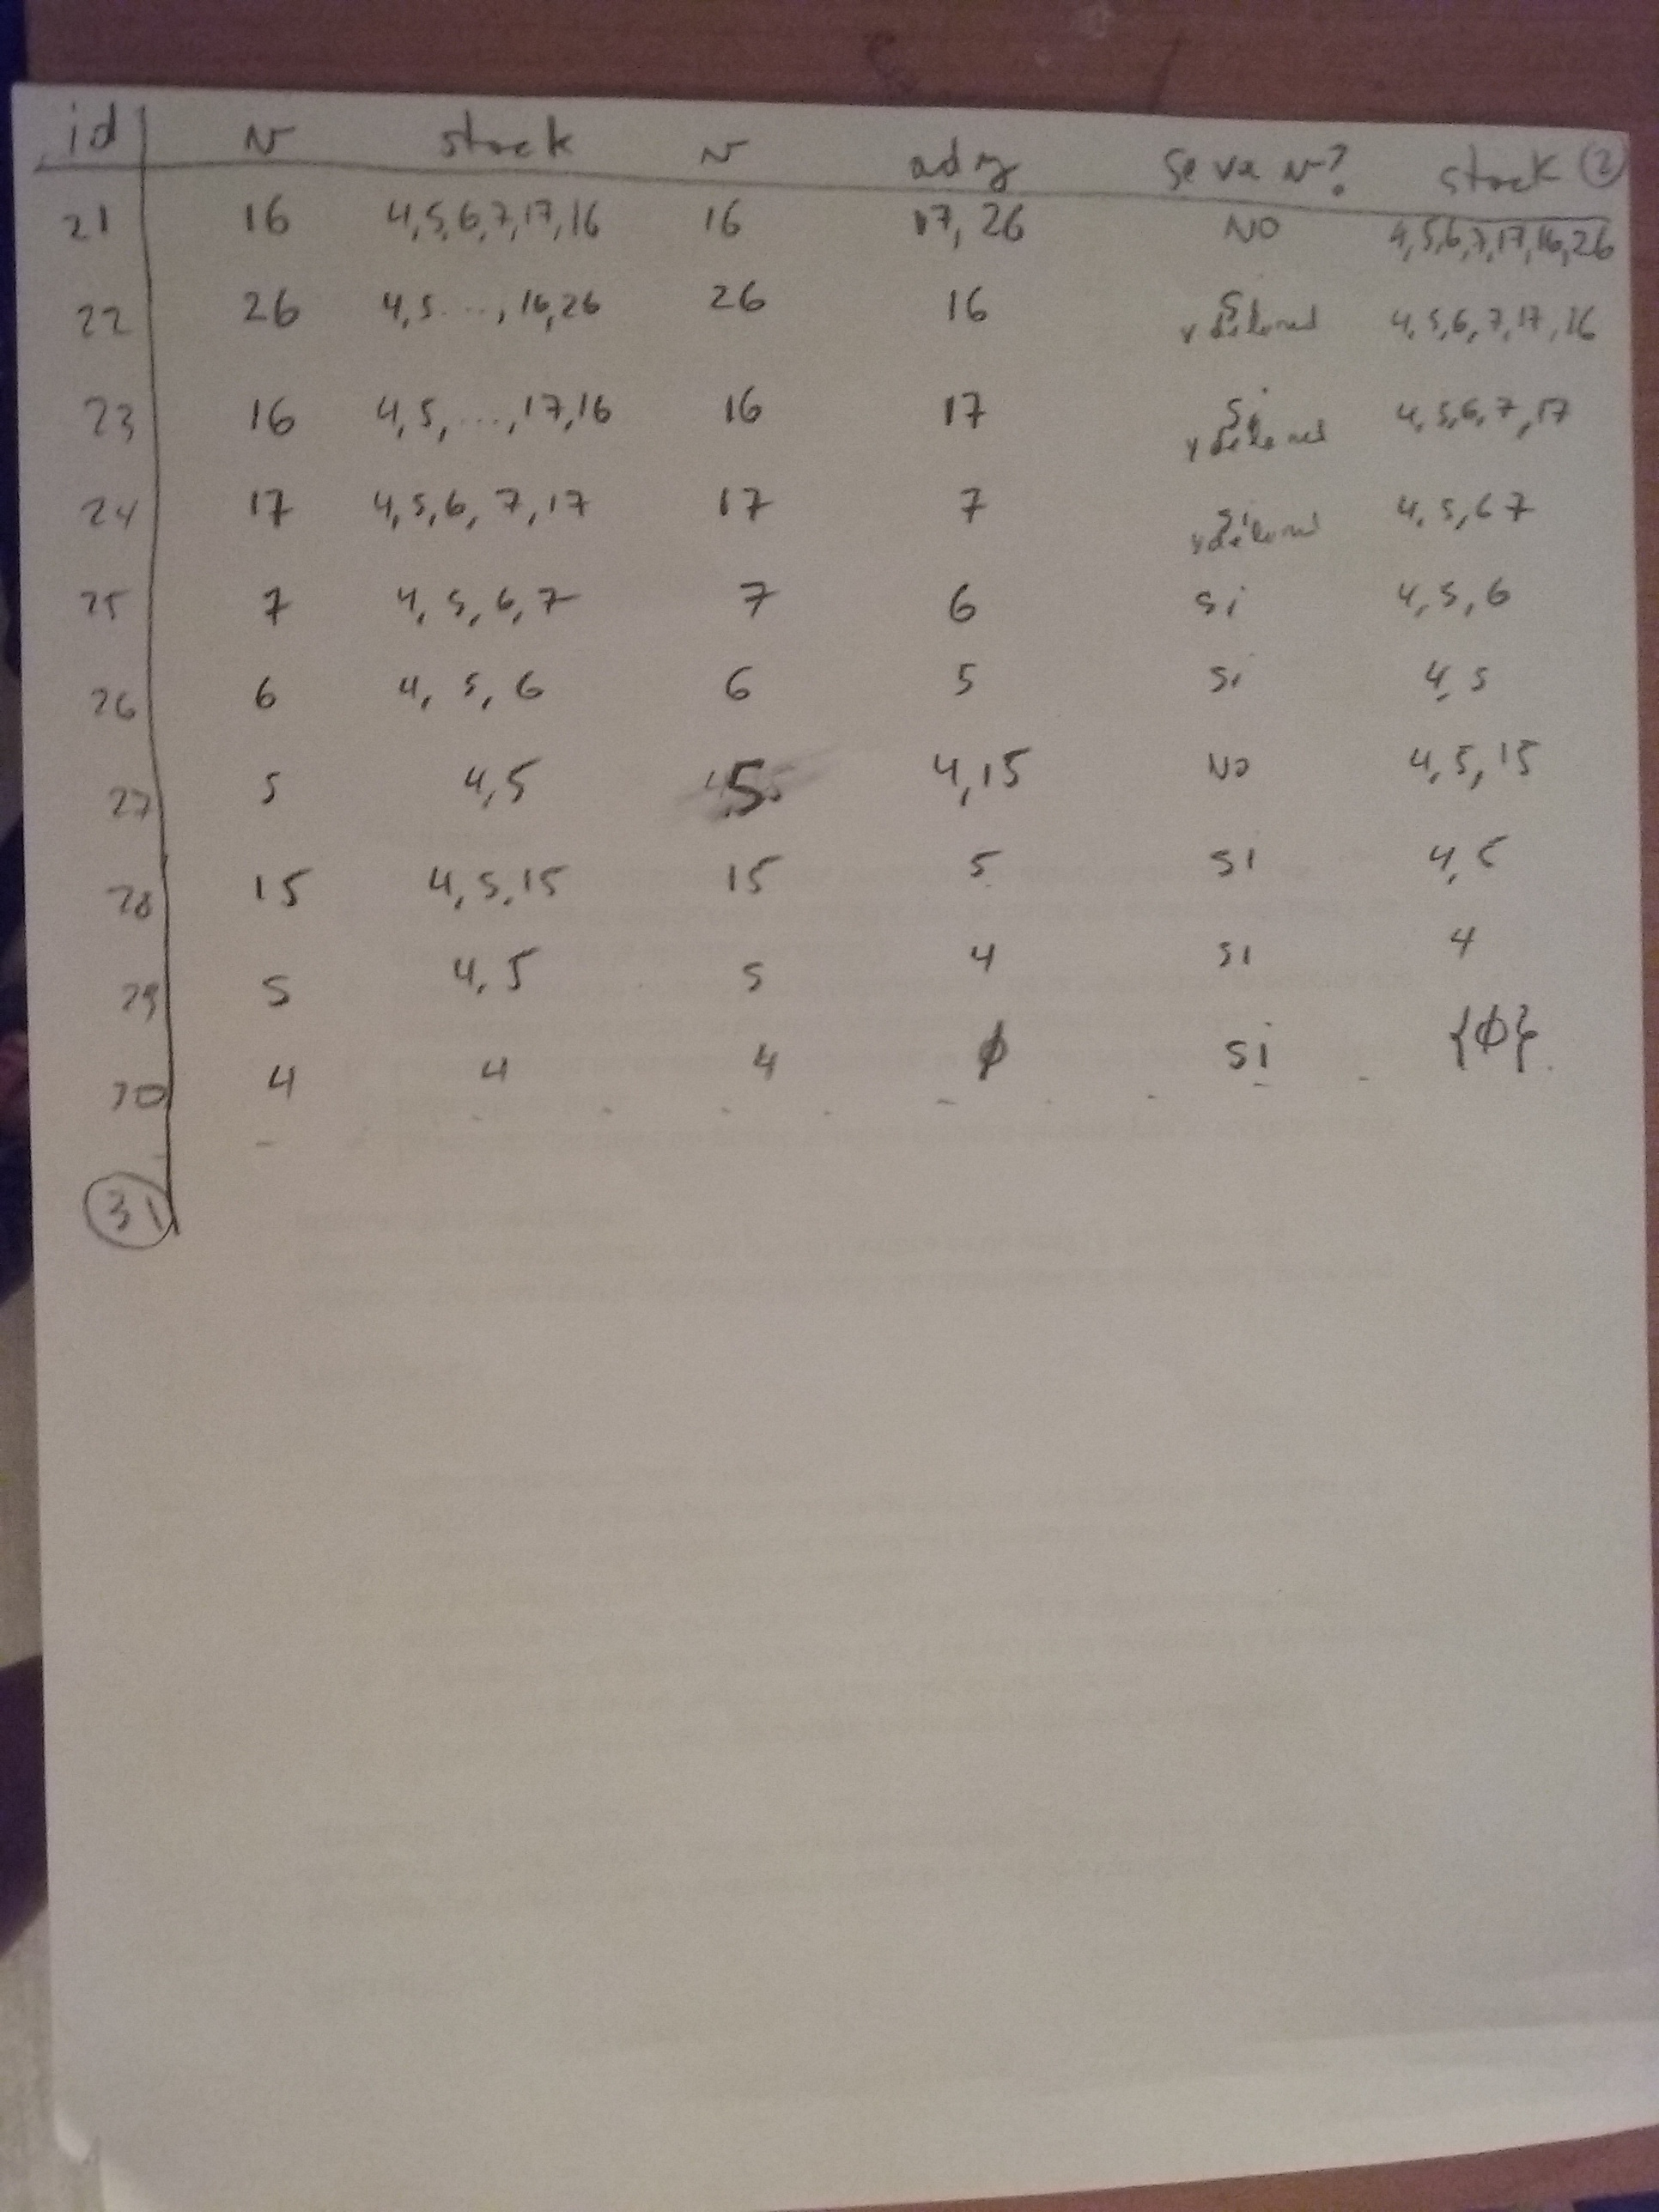 id N stack N ady se va N? stack ②
21 16 4,5,6,7,17,16 16 17, 26 NO 4,5,6,7,17,16,26
22 26 4,5...,16,26 26 16 Si 4,5,6,7,17,16
23 16 4,5,...,17,16 16 17 Si 4,5,6,7,17
24 17 4,5,6,7,17 17 7 Si 4,5,6 7
25 7 4,5,6,7 7 6 si 4,5,6
26 6 4, 5, 6 6 5 si 4,5
27 5 4,5 5 4,15 NO 4,5,15
28 15 4,5,15 15 5 si 4,5
29 5 4,5 5 4 si 4
30 4 4 4 ϕ si {ϕ}
31